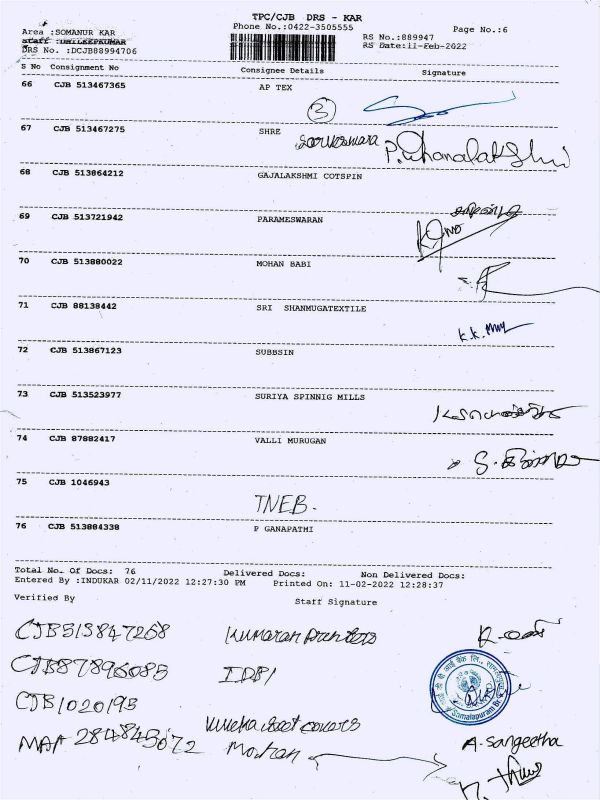 TPC/CJB DRS - KAR
Area :SOMANUR KAR Phone No.:0422-3505555 Page No.:6
RS No.:889947
DRS No. :DCJB88994706 RS Date:11-Feb-2022
S No Consignment No Consignee Details Signature
66 CJB 513467365 AP TEX
3
67 CJB 513467275 SHRE
P. Dhanalakshmi
68 CJB 513864212 GAJALAKSHMI COTSPIN
69 CJB 513721942 PARAMESWARAN
70 CJB 513880022 MOHAN BABI
71 CJB 88138442 SRI SHANMUGATEXTILE
72 CJB 513867123 SUBBSIN
73 CJB 513523977 SURIYA SPINNIG MILLS
74 CJB 87882417 VALLI MURUGAN
75 CJB 1046943 TNEB.
76 CJB 513884338 P GANAPATHI
Total No. Of Docs: 76 Delivered Docs: Non Delivered Docs:
Entered By :INDUKAR 02/11/2022 12:27:30 PM Printed On: 11-02-2022 12:28:37
Verified By Staff Signature
CJB513847268 Kumaran Printers
CJB87896085 IDBI
CJB1020193
seat covers
MAA 284845072 Mohan A. Sangeetha